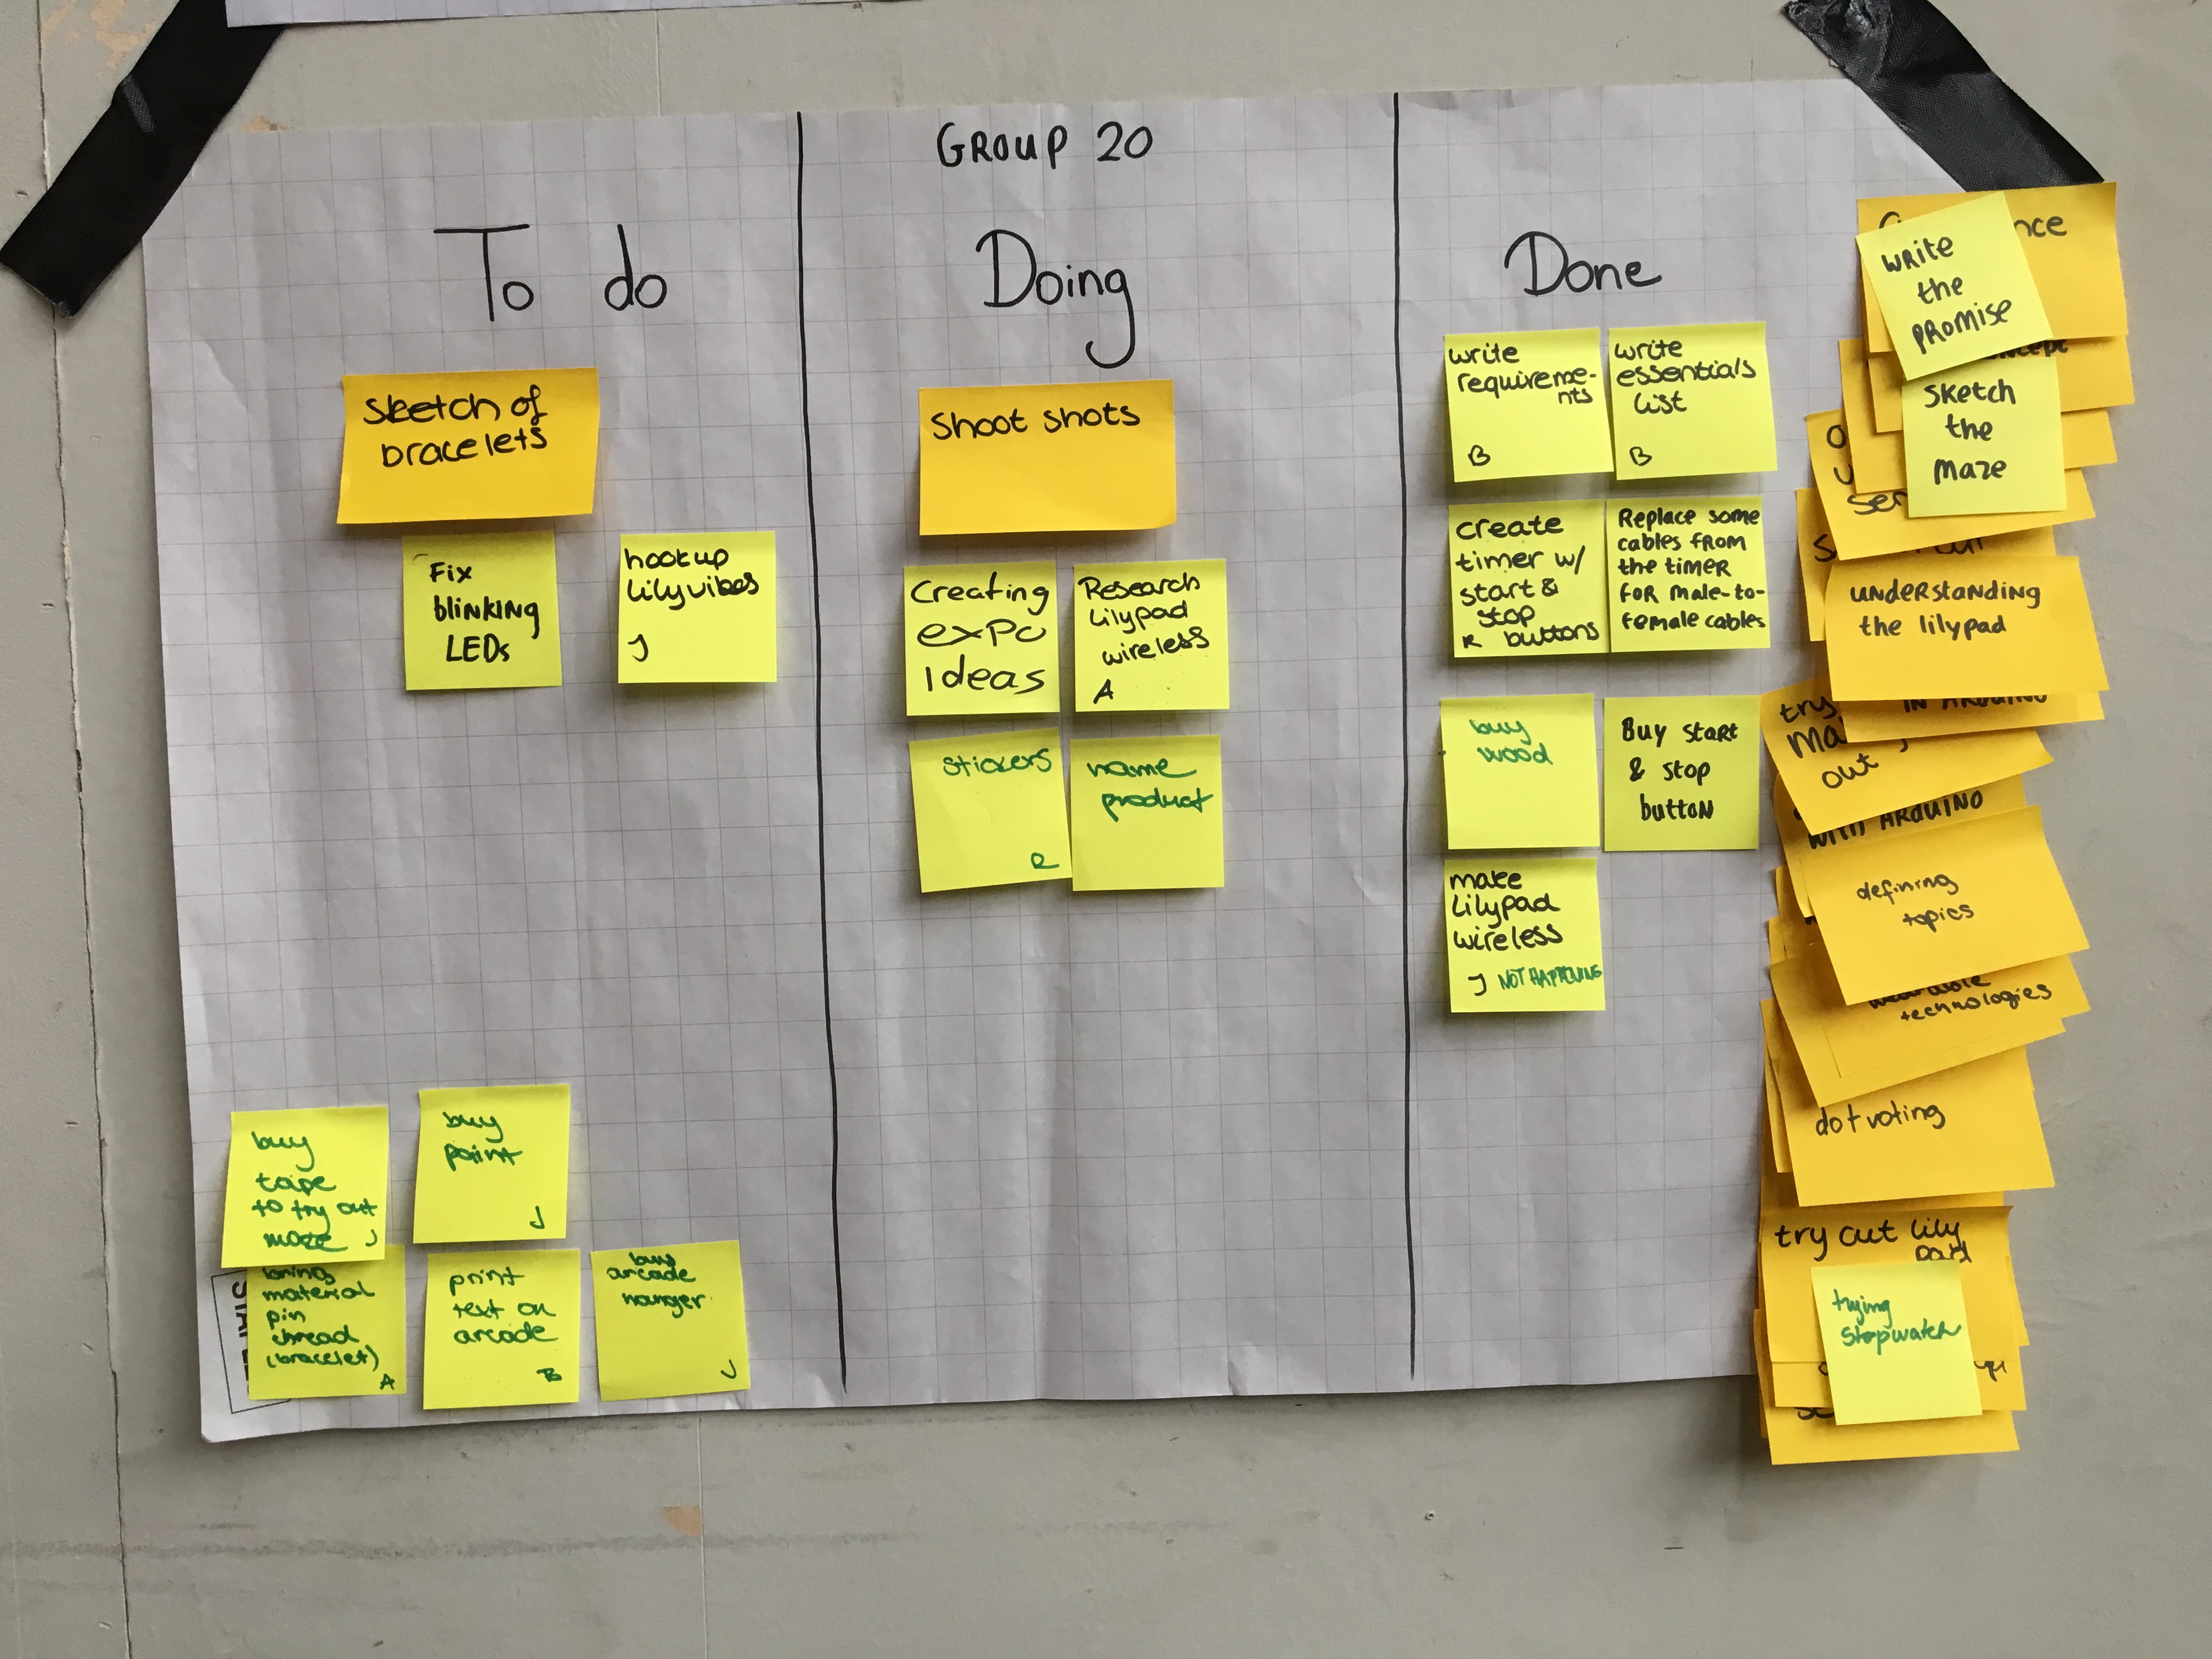 GROUP 20
To do
Sketch of
bracelets
Fix
blinking
LEDs
hook up
lilyvibes
J
buy
tape
to try out
maze J
buy
paint
J
material
pin
thread
(bracelet)
A
print
text on
arcade
B
buy
arcade
hanger
J
Doing
Shoot shots
Creating
expo
Ideas
Research
Lilypad
wireless
A
stickers
R
name
product
Done
write
requireme-
nts
B
write
essentials
list
B
create
timer w/
start &
stop
R buttons
Replace some
cables from
the timer
for male-to-
female cables
buy
wood
Buy start
& stop
button
make
Lilypad
wireless
J NOT HAPPENING
write
the
promise
Sketch
the
maze
understanding
the lilypad
IN ARDUINO
try
out
WITH ARDUINO
defining
topics
wearable
technologies
dot voting
try out lily
pad
trying
stopwatch